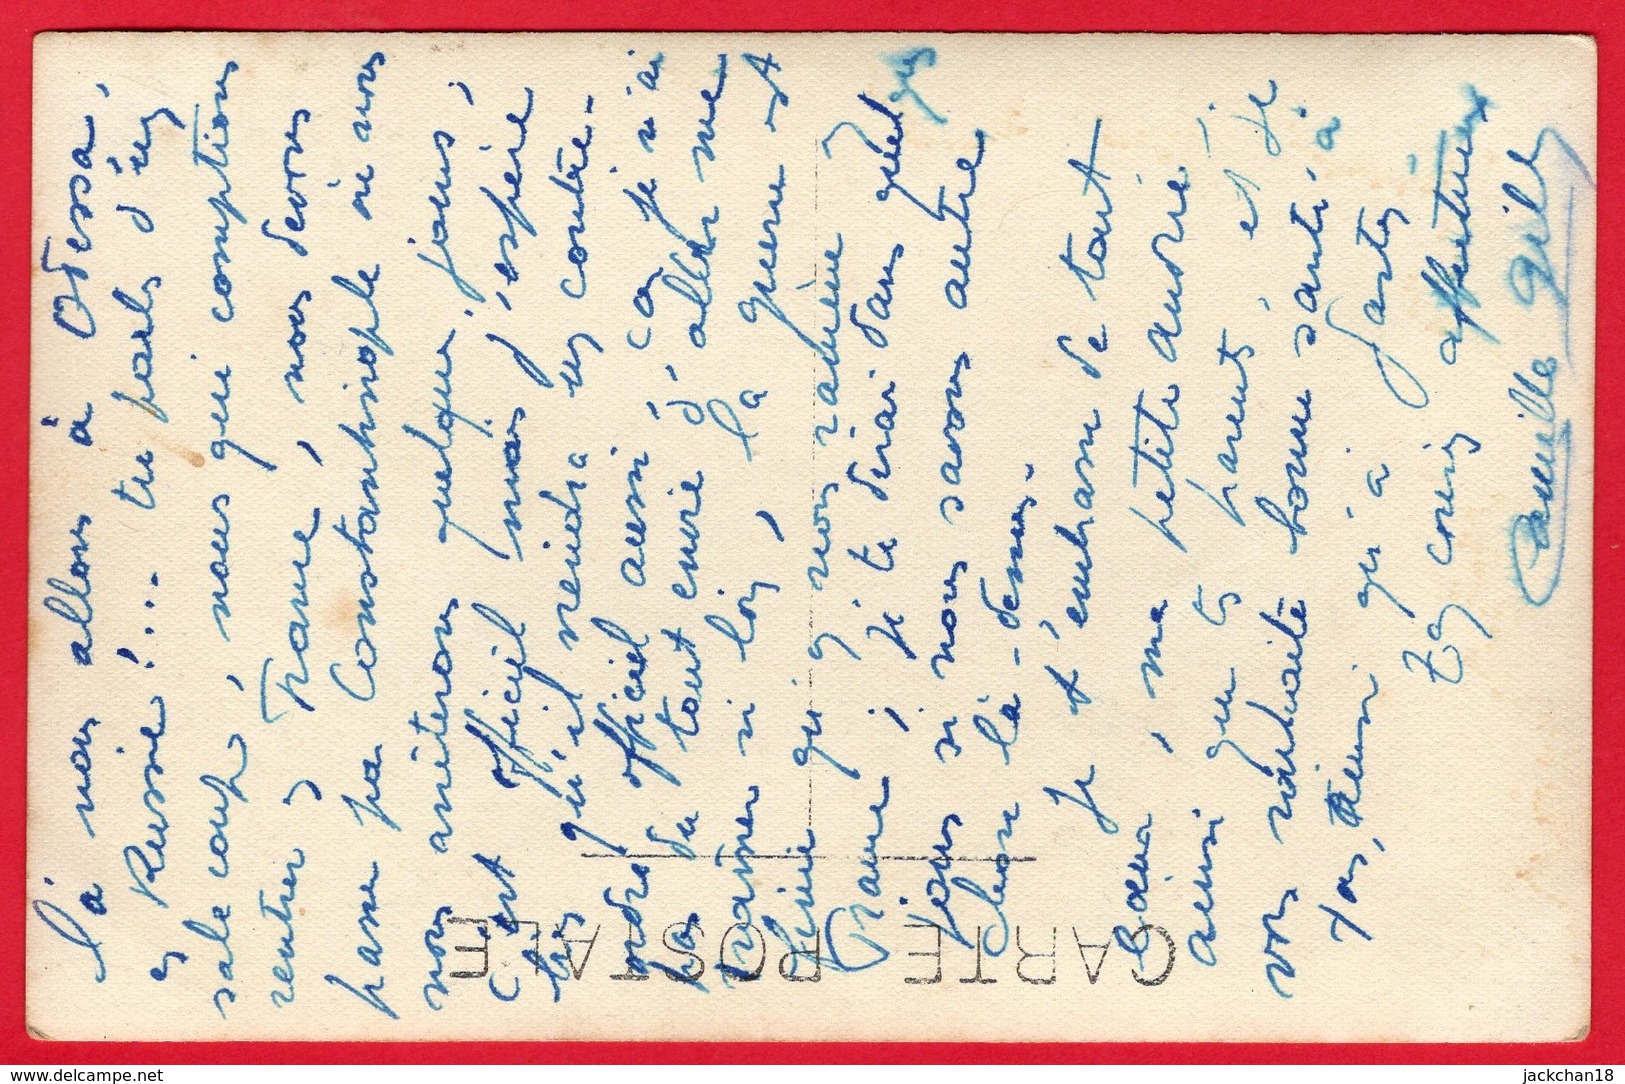 là nous allons à Odessa,
en Russie!... tu parles d'un
sale coup, nous qui comptions
rentrer en France, nous devons
passer par Constantinople où nous
nous arrêterons quelques jours,
C'est officiel mais j'espère
bien qu'il viendra un contre-
ordre officiel aussi car je n'ai
pas du tout envie d'aller me
traîner si loin, la guerre est
finie qu'on nous ramène en
France; je te dirai dans quelques
jours si nous avons autre
chose là-dessus.
Je t'embrasse de tout
cœur, ma petite
ainsi que tes parents, et je
vous souhaite bonne santé à
tous, ainsi qu'à
Ton cousin affectueux
Camille
CARTE POSTALE
www.delcampe.net
jackchan18